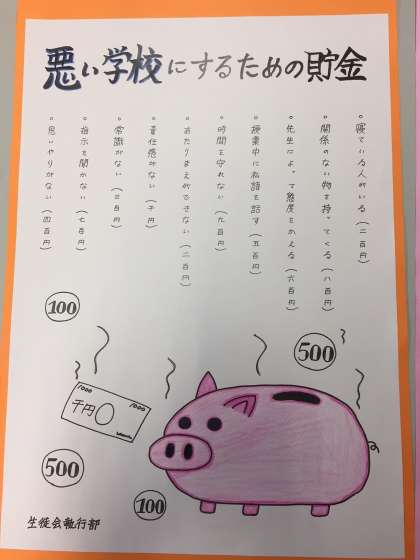 悪い学校にするための貯金
。寝ている人がいる(二百円)
。関係のない物を持ってくる(八百円)
。先生によって態度をかえる(六百円)
。授業中に私語を話す(五百円)
。時間を守れない(九百円)
。あたりまえができない(二百円)
。責任感がない(千円)
。常識がない(三百円)
。指示を聞かない(七百円)
。思いやりがない(四百円)
100
500
1000
千円
1000
500
100
生徒会執行部